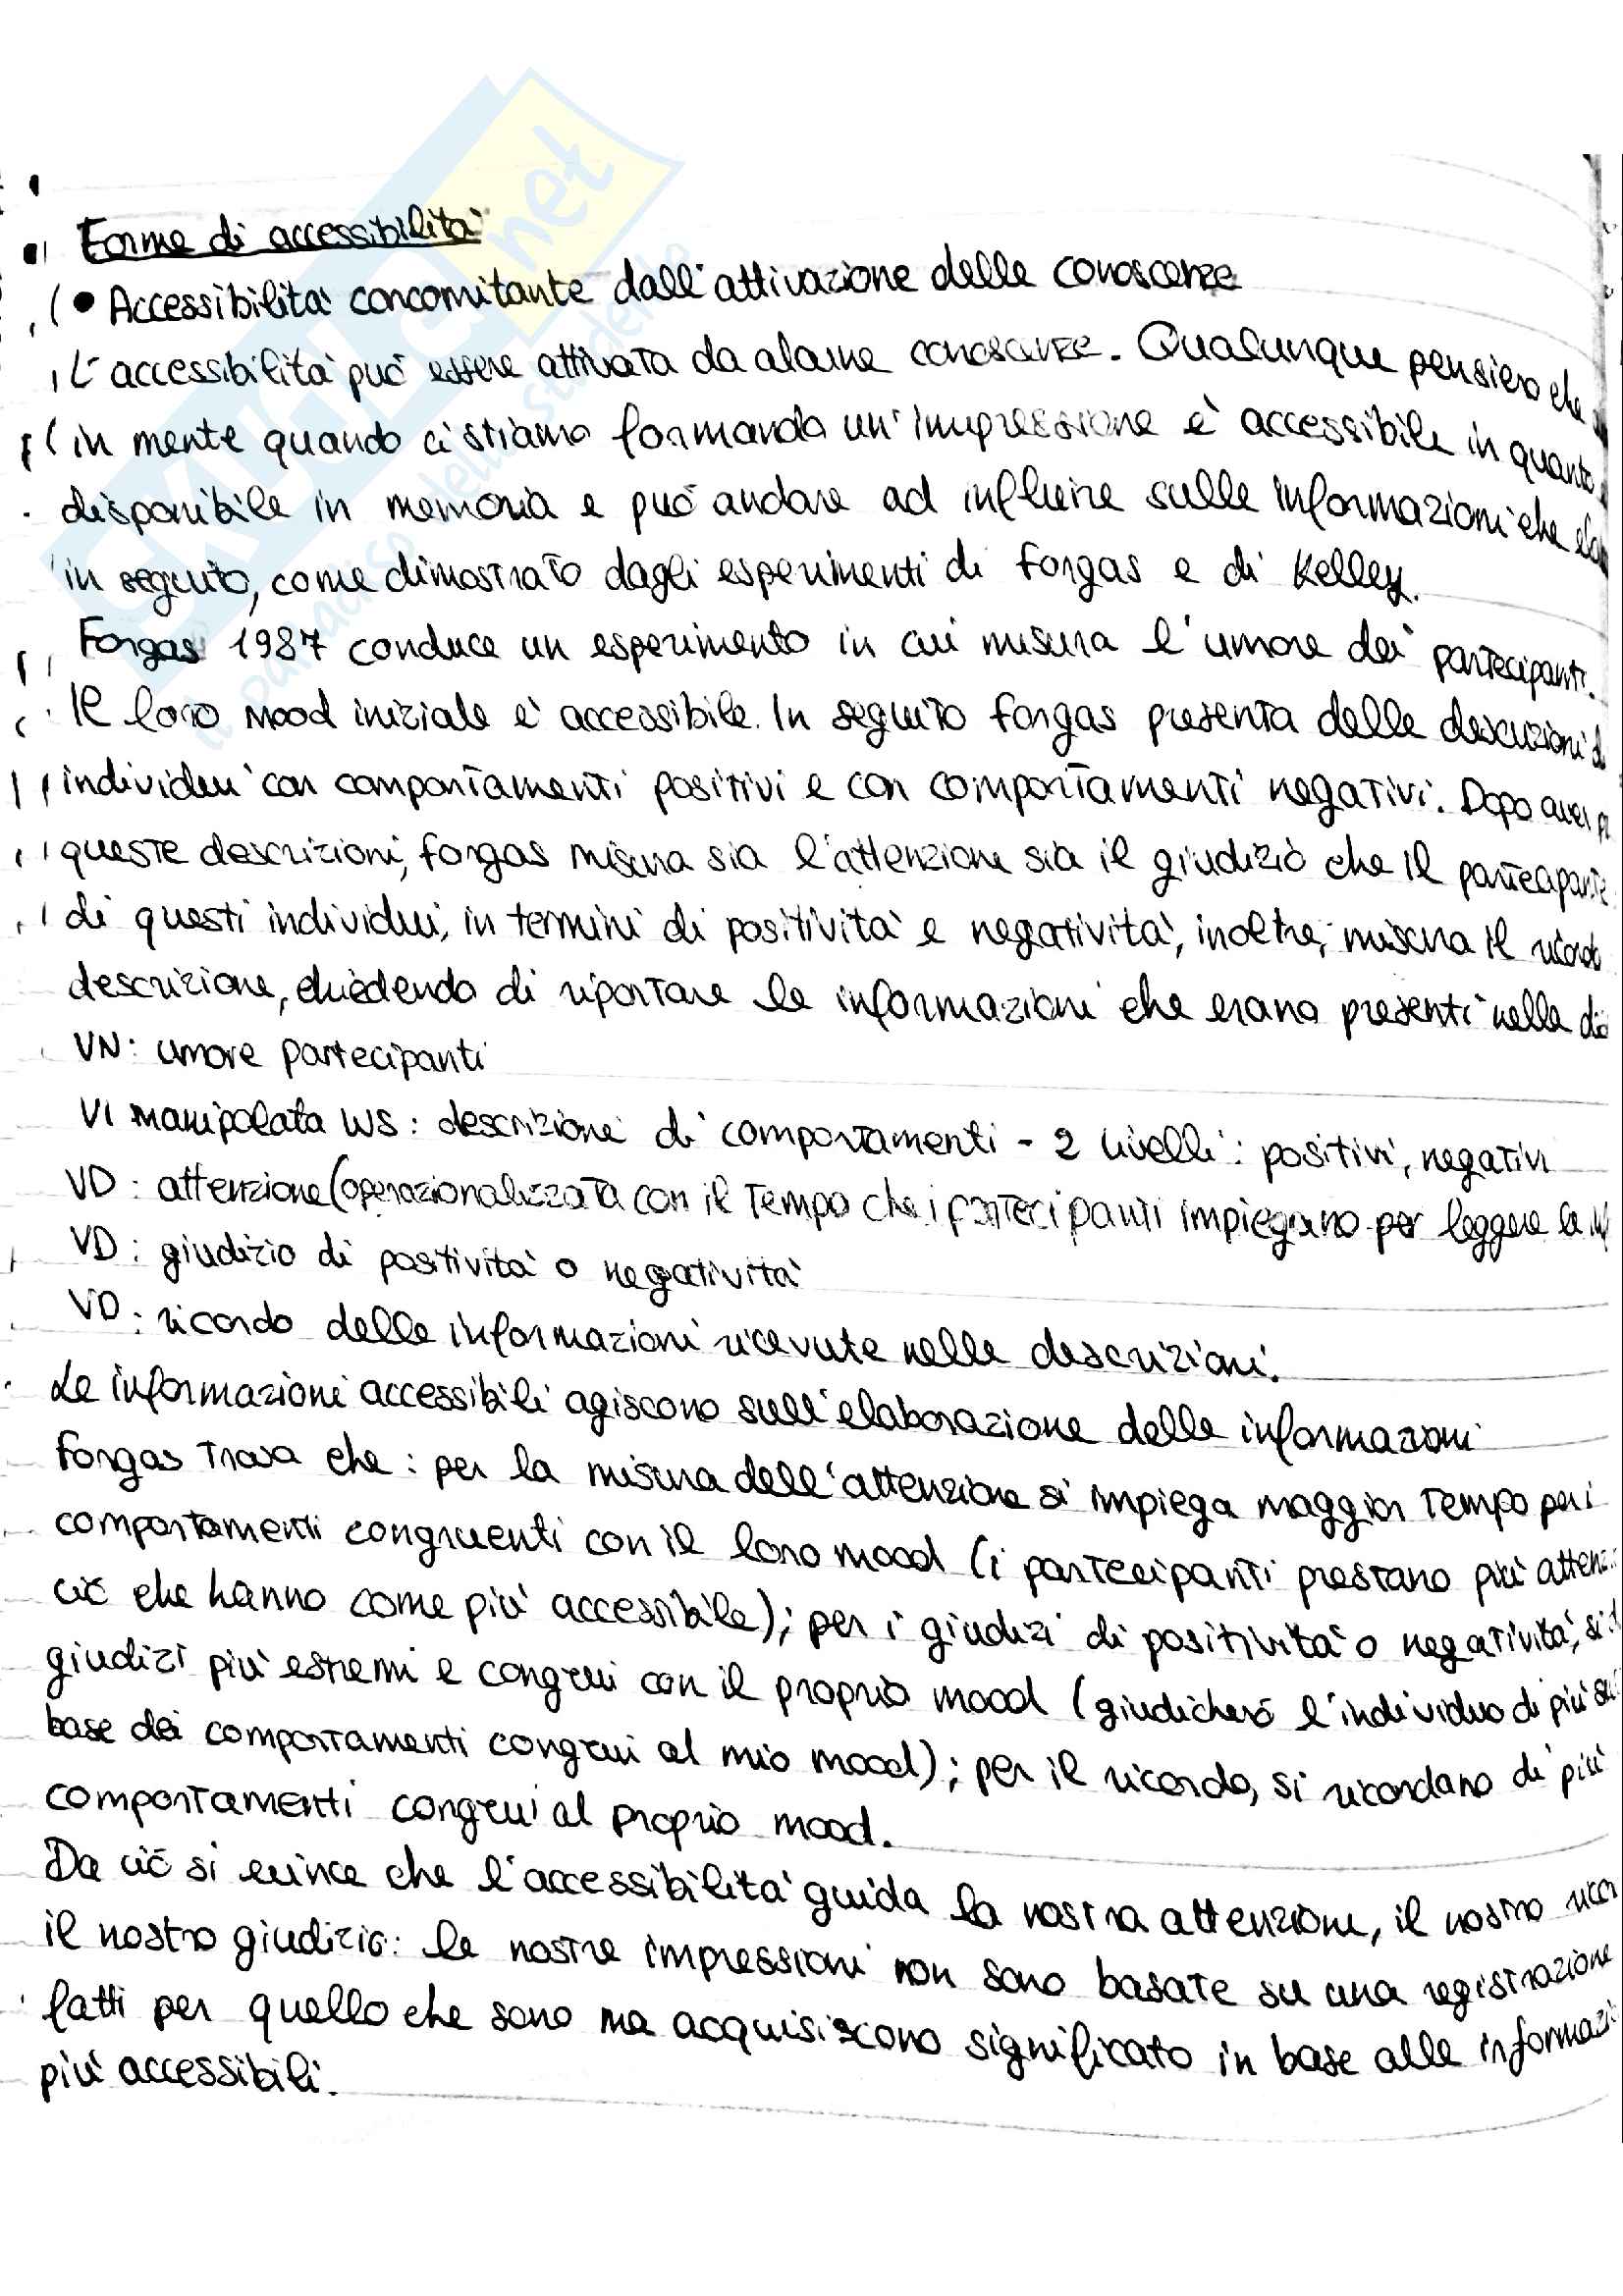 Forme di accessibilità
• Accessibilità concomitante dall'attivazione delle conoscenze
L'accessibilità può essere attivata da alcune conoscenze. Qualunque pensiero che
in mente quando ci stiamo formando un'impressione è accessibile in quanto
disponibile in memoria e può andare ad influire sulle informazioni che
in seguito, come dimostrato dagli esperimenti di Forgas e di Kelley.
Forgas 1987 conduce un esperimento in cui misura l'umore dei partecipanti.
Il loro mood iniziale è accessibile. In seguito Forgas presenta delle descrizioni
individui con comportamenti positivi e con comportamenti negativi. Dopo aver
queste descrizioni, Forgas misura sia l'attenzione sia il giudizio che il partecipante
di questi individui, in termini di positività e negatività, inoltre, misura il ricordo
descrizione, chiedendo di riportare le informazioni che erano presenti nella
VN: umore partecipanti
VI manipolata WS: descrizione di comportamenti - 2 livelli: positivi, negativi
VD: attenzione (operazionalizzata con il tempo che i partecipanti impiegano per leggere le
VD: giudizio di positività o negatività
VD: ricordo delle informazioni ricevute nelle descrizioni.
Le informazioni accessibili agiscono sull'elaborazione delle informazioni
Forgas trova che: per la misura dell'attenzione si impiega maggior tempo per i
comportamenti congruenti con il loro mood (i partecipanti prestano più
ciò che hanno come più accessibile); per i giudizi di positività o negatività, si
giudizi più estremi e congrui con il proprio mood (giudicherò l'individuo di più
base dei comportamenti congrui al mio mood); per il ricordo, si ricordano di più
comportamenti congrui al proprio mood.
Da ciò si evince che l'accessibilità guida la nostra attenzione, il nostro
il nostro giudizio: le nostre impressioni non sono basate su una registrazione
fatti per quello che sono ma acquisiscono significato in base alle
più accessibili.
skuola.net
il paradiso dello studente